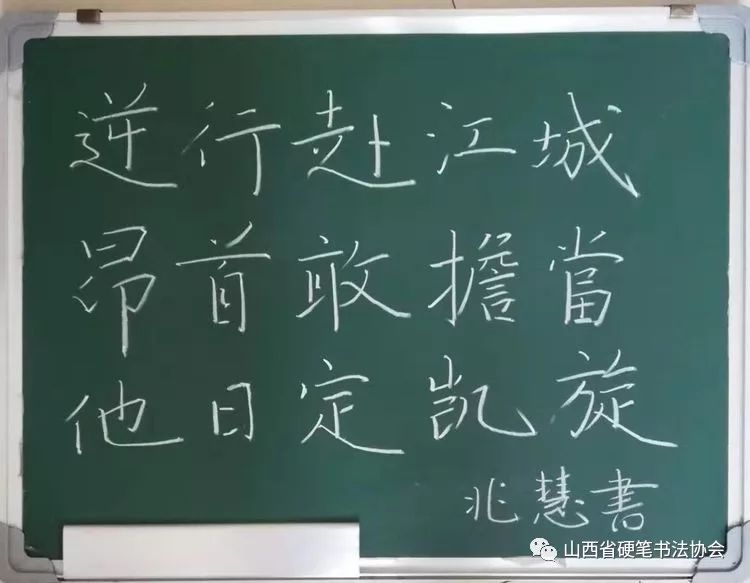 逆行赴江城
昂首敢擔當
他日定凯旋
兆慧書
山西省硬笔书法协会